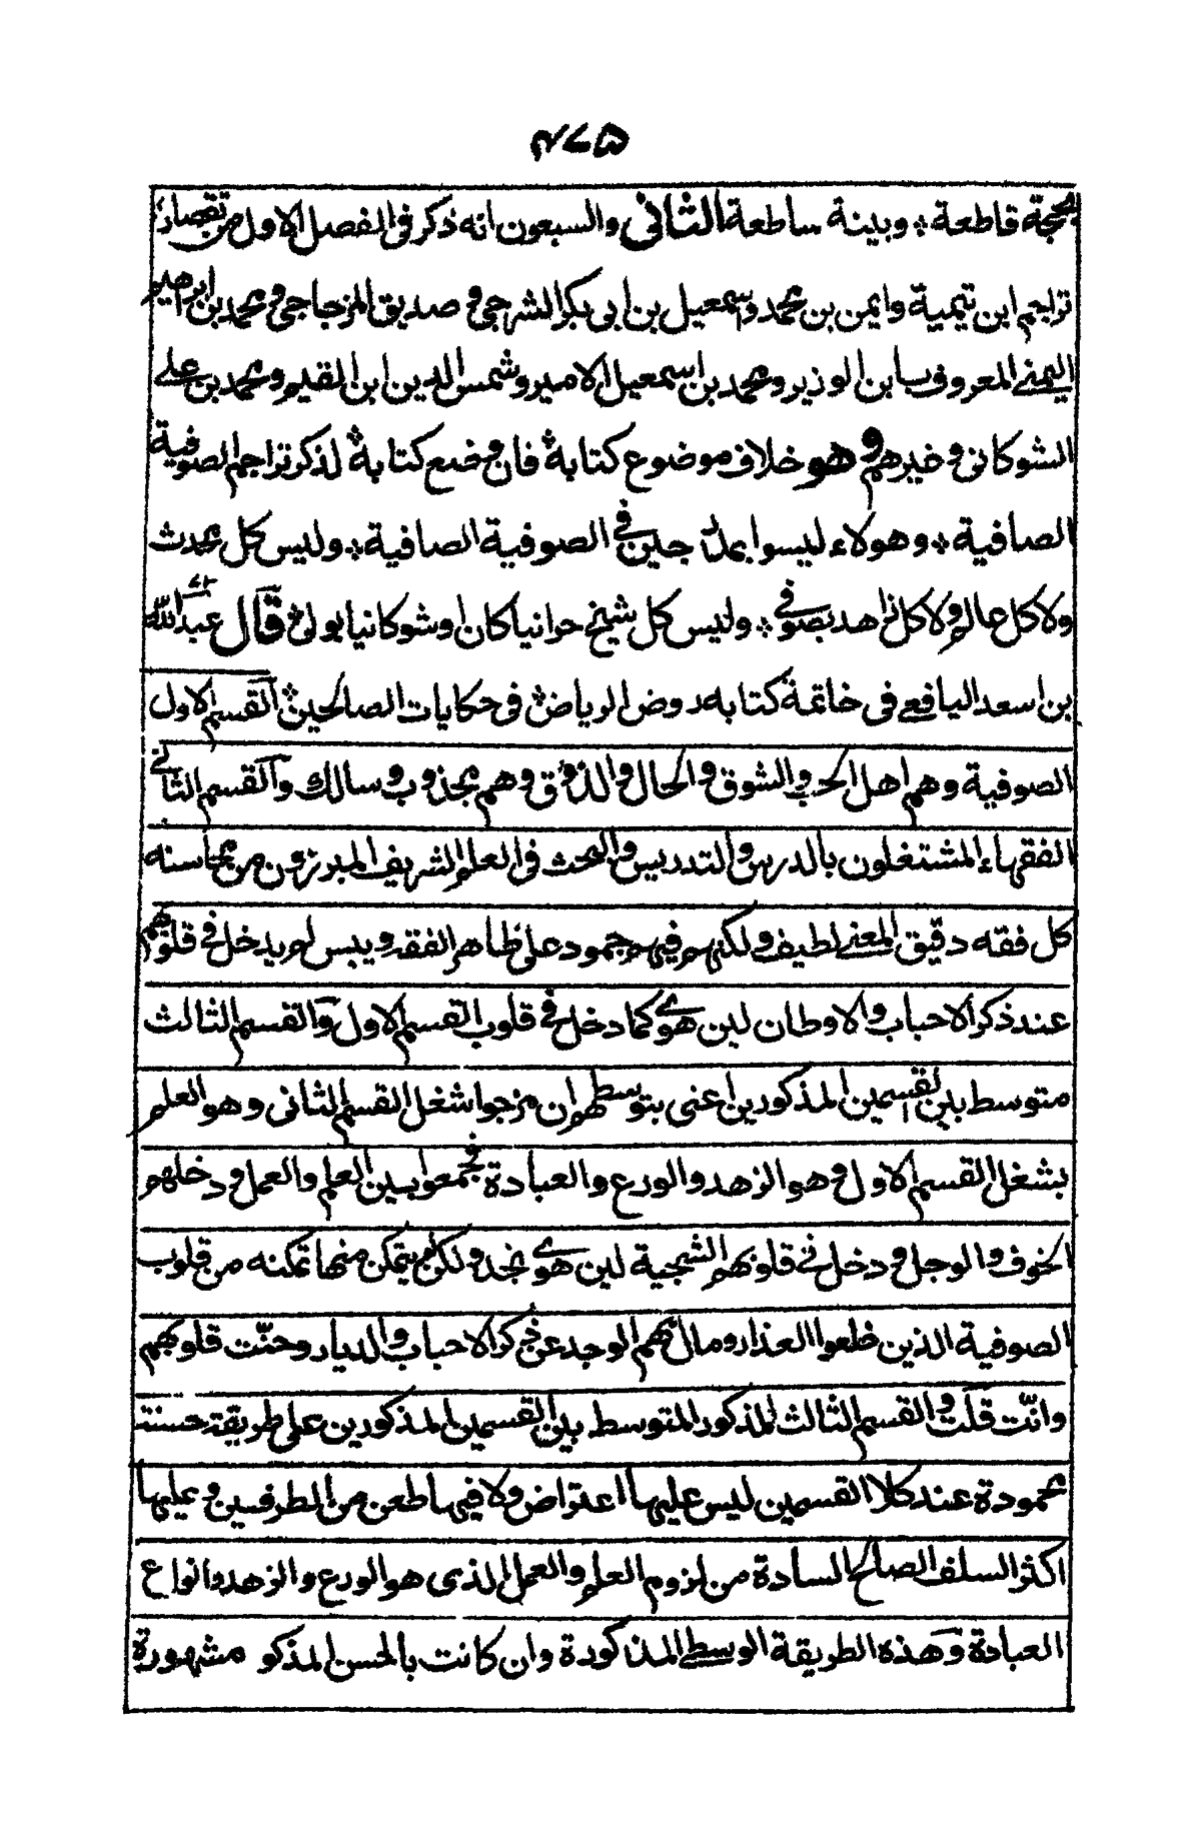 ۴۷۵
بحجة قاطعة ٭ وبينة ساطعة الثاني والسبعون انه ذكر في الفصل الاول من تقصار
تراجم ابن تيمية وايمن بن محمد واسمعيل بن ابي بكر الشرجي و صديق المزجاجي و محمد بن ابراهيم
اليمني المعروف بابن الوزير و محمد بن اسمعيل الامير و شمس الدين ابن القيم و محمد بن علي
الشوكاني و غيرهم و هو خلاف موضوع كتابة فان وضع كتابة لذكر تراجم الصوفية
الصافية ٭ و هولاء ليسوا بمندرجين في الصوفية الصافية ٭ وليس كل محدث
ولا كل عالم ولا كل زاهد بصوفي ٭ وليس كل شيخ حرانيا كان او شوكانيا بولي قال عبد الله
بن اسعد اليافعي في خاتمة كتابه روض الرياض في حكايات الصالحين القسم الاول
الصوفية وهم اهل الحب والشوق والحال والذوق وهم مجذوب و سالك والقسم الثاني
الفقهاء المشتغلون بالدرس والتدريس والبحث في العلم الشريف المبرزون من محاسنه
كل فقه دقيق المعنى لطيف ولكنهم فيهم جمود على ظاهر الفقه ويبس لم يدخل في قلوبهم
عند ذكر الاحباب والاوطان لين هوى كما دخل في قلوب القسم الاول والقسم الثالث
متوسط بين القسمين المذكورين اعني بتوسطهم ان مزجوا شغل القسم الثاني و هو العلم
بشغل القسم الاول و هو الزهد والورع والعبادة فجمعوا بين العلم والعمل و دخلهم
الخوف والوجل و دخل في قلوبهم الشجية لين هوى نجد ولكن لم يتمكن منها تمكنه من قلوب
الصوفية الذين خلعوا العذار و مال بهم الوجد عن ذكر الاحباب والديار وحنّت قلوبهم
وانّت قلت و القسم الثالث المذكور المتوسط بين القسمين المذكورين على طريقة حسنة
محمودة عند كلا القسمين ليس عليها اعتراض ولا فيها طعن من الطرفين و عليها
اكثر السلف الصالح السادة من لزوم العلم والعمل الذي هو الورع والزهد وانواع
العبادة و هذه الطريقة الوسطى المذكورة وان كانت بالحسن المذكو مشهورة